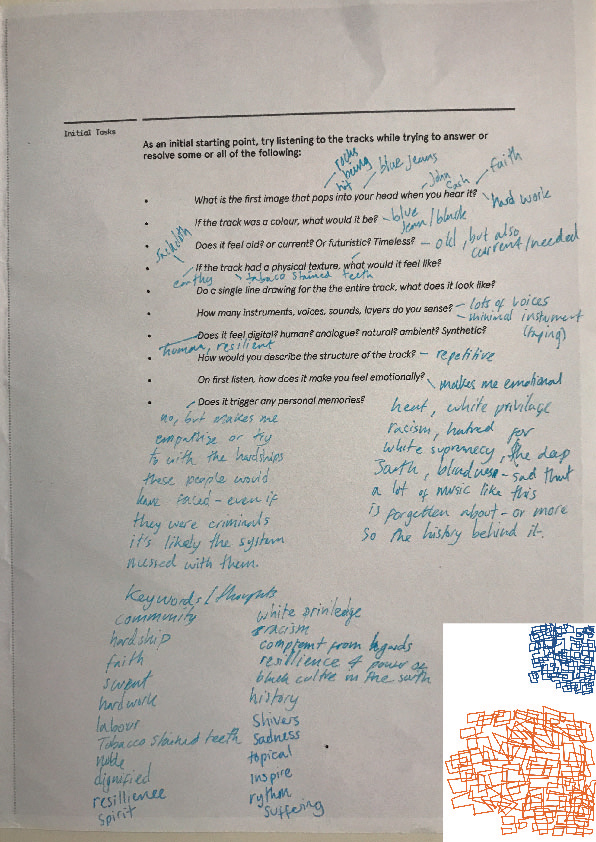 Initial Tasks
As an initial starting point, try listening to the tracks while trying to answer or
resolve some or all of the following:
rocks
being
hit
blue jeans
John
Cash
faith
What is the first image that pops into your head when you hear it?
hard work
If the track was a colour, what would it be? - blue
jean/black
Does it feel old? or current? Or futuristic? Timeless? - old, but also
current/needed
If the track had a physical texture, what would it feel like?
earthy
tobaco stained teeth
Do a single line drawing for the the entire track, what does it look like?
How many instruments, voices, sounds, layers do you sense? - lots of voices
- minimal instument
Does it feel digital? human? analogue? natural? ambient? Synthetic?
human, resilient
How would you describe the structure of the track? - repetitive
On first listen, how does it make you feel emotionally?
makes me emotional
Does it trigger any personal memories?
no, but makes me
empathise or try
to with the hardships
these people would
have faced - even if
they were criminals
it's likely the system
messed with them.
heat, white privilage
racism, hatred for
white supremecy, the deep
South, blindness - sad that
a lot of music like this
is forgotten about - or more
so the history behind it.
Keywords / thoughts
community
hardship
faith
sweat
hardwork
labour
Tobacco stained teeth
Noble
dignified
resillience
Spirit
white priviledge
racism
resillience & power of
black cultre in the south
history
Shivers
Sadness
topical
Inspire
rythm
Suffering